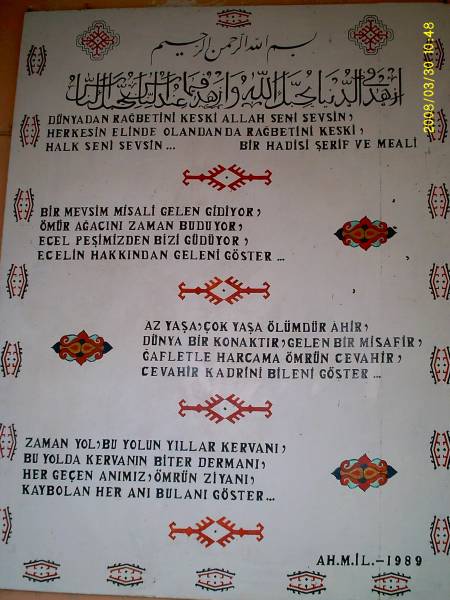 بسم الله الرحمن الرحيم
ازهد في الدنيا يحبك الله وازهد فيما عند الناس يحبك الناس
DÜNYADAN RAĞBETİNİ KESKİ ALLAH SENİ SEVSİN,
HERKESİN ELİNDE OLANDAN DA RAĞBETİNİ KESKİ,
HALK SENİ SEVSİN... BİR HADİSİ ŞERİF VE MEALİ
BİR MEVSİM MİSALİ GELEN GİDİYOR,
ÖMÜR AĞACINI ZAMAN BUDUYOR,
ECEL PEŞİMİZDEN BİZİ GÜDÜYOR,
ECELİN HAKKINDAN GELENİ GÖSTER...
AZ YAŞA, ÇOK YAŞA ÖLÜMDÜR AHİR,
DÜNYA BİR KONAKTIR, GELEN BİR MİSAFİR,
GAFLETLE HARCAMA ÖMRÜN CEVAHİR,
CEVAHİR KADRİNİ BİLENİ GÖSTER...
ZAMAN YOL, BU YOLUN YILLAR KERVANI,
BU YOLDA KERVANIN BİTER DERMANI,
HER GEÇEN ANIMIZ, ÖMRÜN ZİYANI,
KAYBOLAN HER ANI BULANI GÖSTER...
AH.M.İL.-1989
2008/03/30 10:48